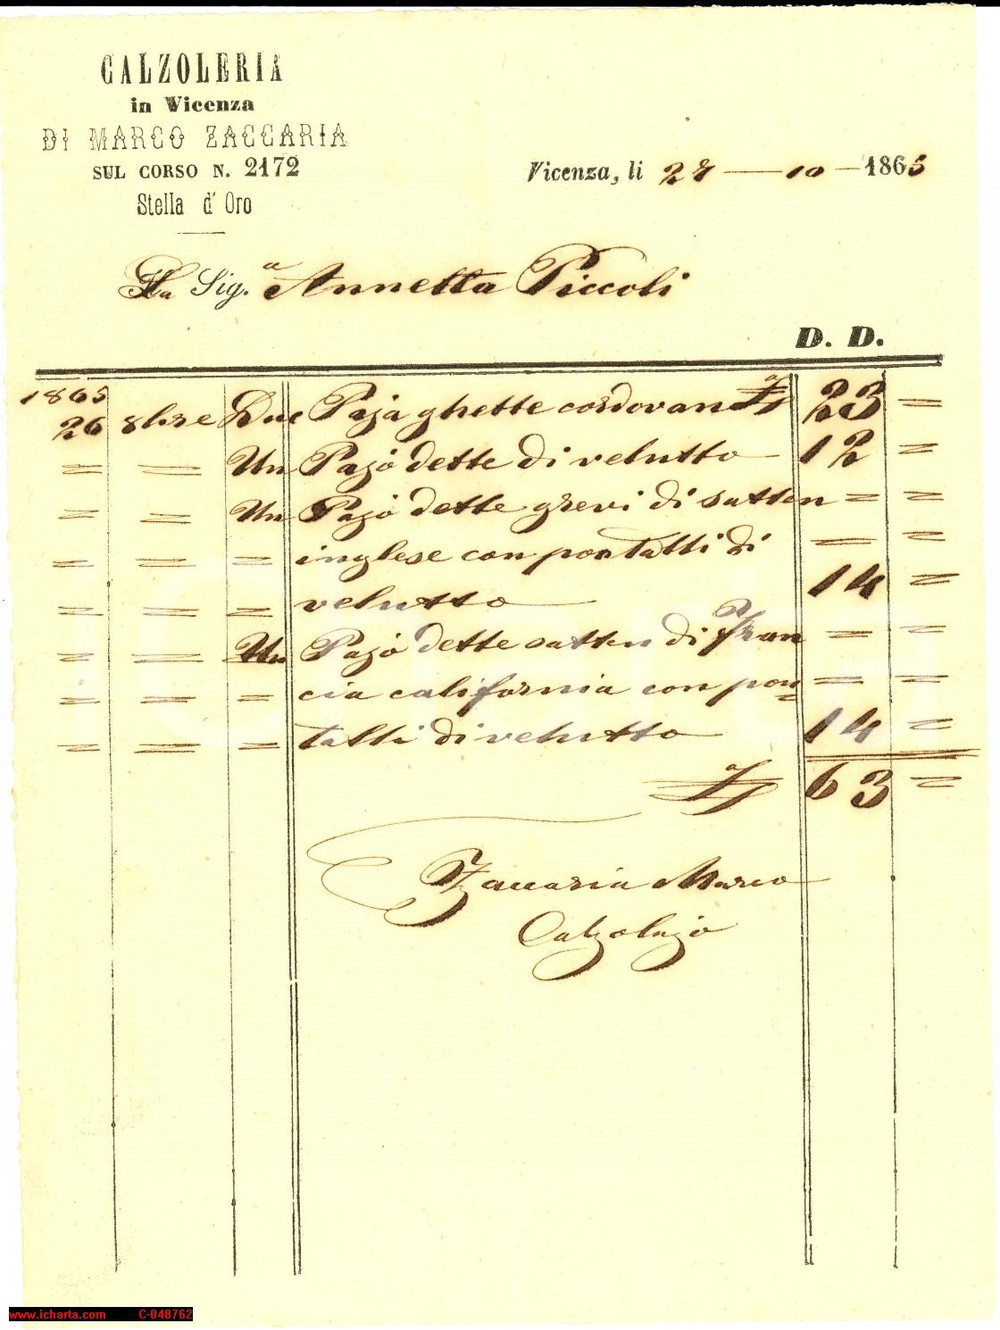 CALZOLERIA
in Vicenza
DI MARCO ZACCARIA
SUL CORSO N. 2172
Stella d' Oro
Vicenza, li 27 — 10 — 1865
La Sig.a Annetta Piccoli
D. D.
1865
26 8bre Due Paja ghette cordovan f 23 =
= = Un Pajo dette di velutto — 12 =
= = Un Pajo dette grevi di satten = =
= = = inglese con pontalli di — =
= = = velutto 14 =
= = Un Pajo dette satten di Fran = =
= = = cia california con pon= = =
= = = talli di velutto 14 =
f 63 =
Zaccaria Marco
Calzolajo
www.icharta.com C-048762